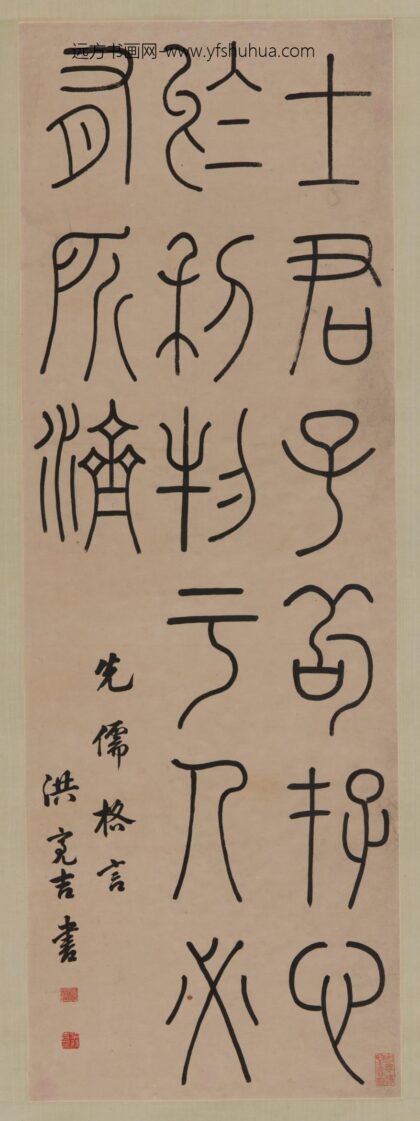 远方书画网-www.yfshuhua.com
士君子苟存心
於利物于人必
有所濟
先儒格言
洪亮吉書